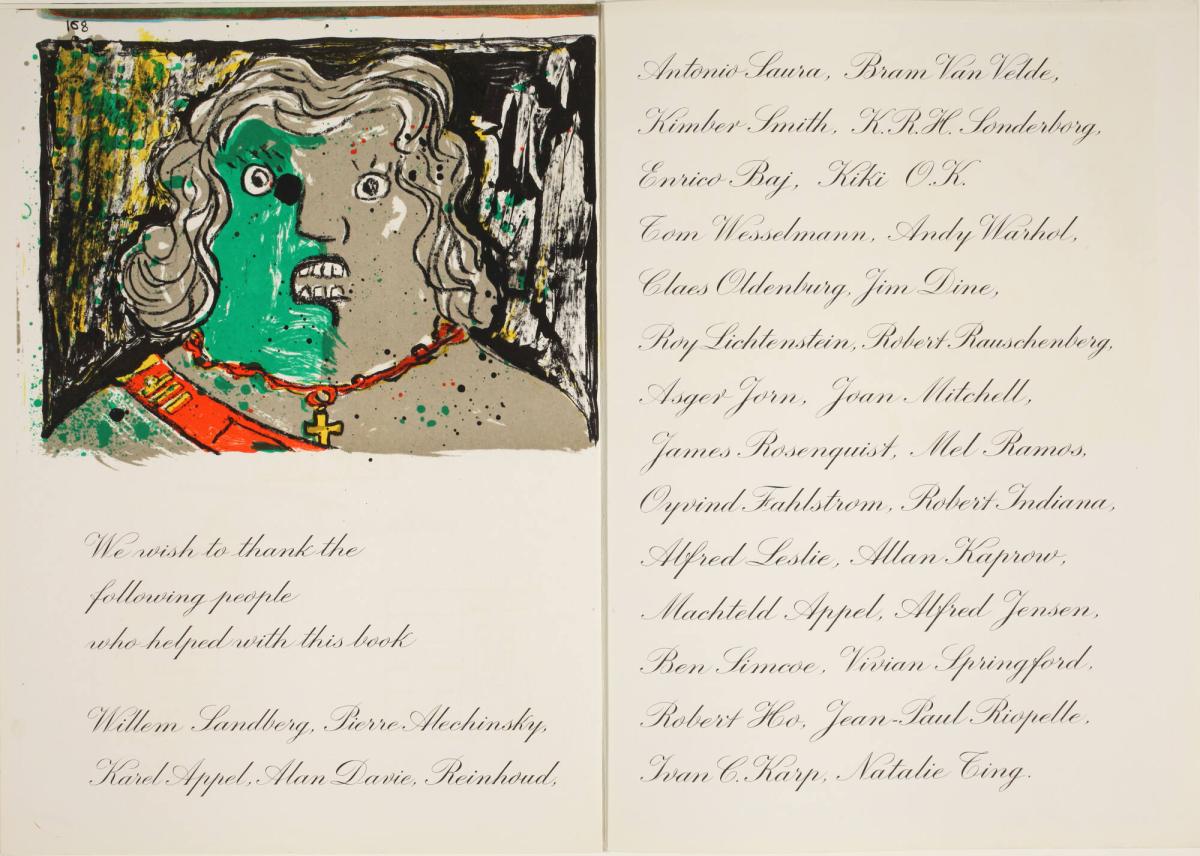 168
We wish to thank the
following people
who helped with this book
Willem Sandberg, Pierre Alechinsky,
Karel Appel, Alan Davie, Reinhoud,
Antonio Saura, Bram Van Velde,
Kimber Smith, K.R.H. Sonderborg,
Enrico Baj, Kiki O.K.
Tom Wesselmann, Andy Warhol,
Claes Oldenburg, Jim Dine,
Roy Lichtenstein, Robert Rauschenberg,
Asger Jorn, Joan Mitchell,
James Rosenquist, Mel Ramos,
Oyvind Fahlstrom, Robert Indiana,
Alfred Leslie, Allan Kaprow,
Machteld Appel, Alfred Jensen,
Ben Simcoe, Vivian Springford,
Robert Ho, Jean-Paul Riopelle,
Ivan C. Karp, Natalie Ting.